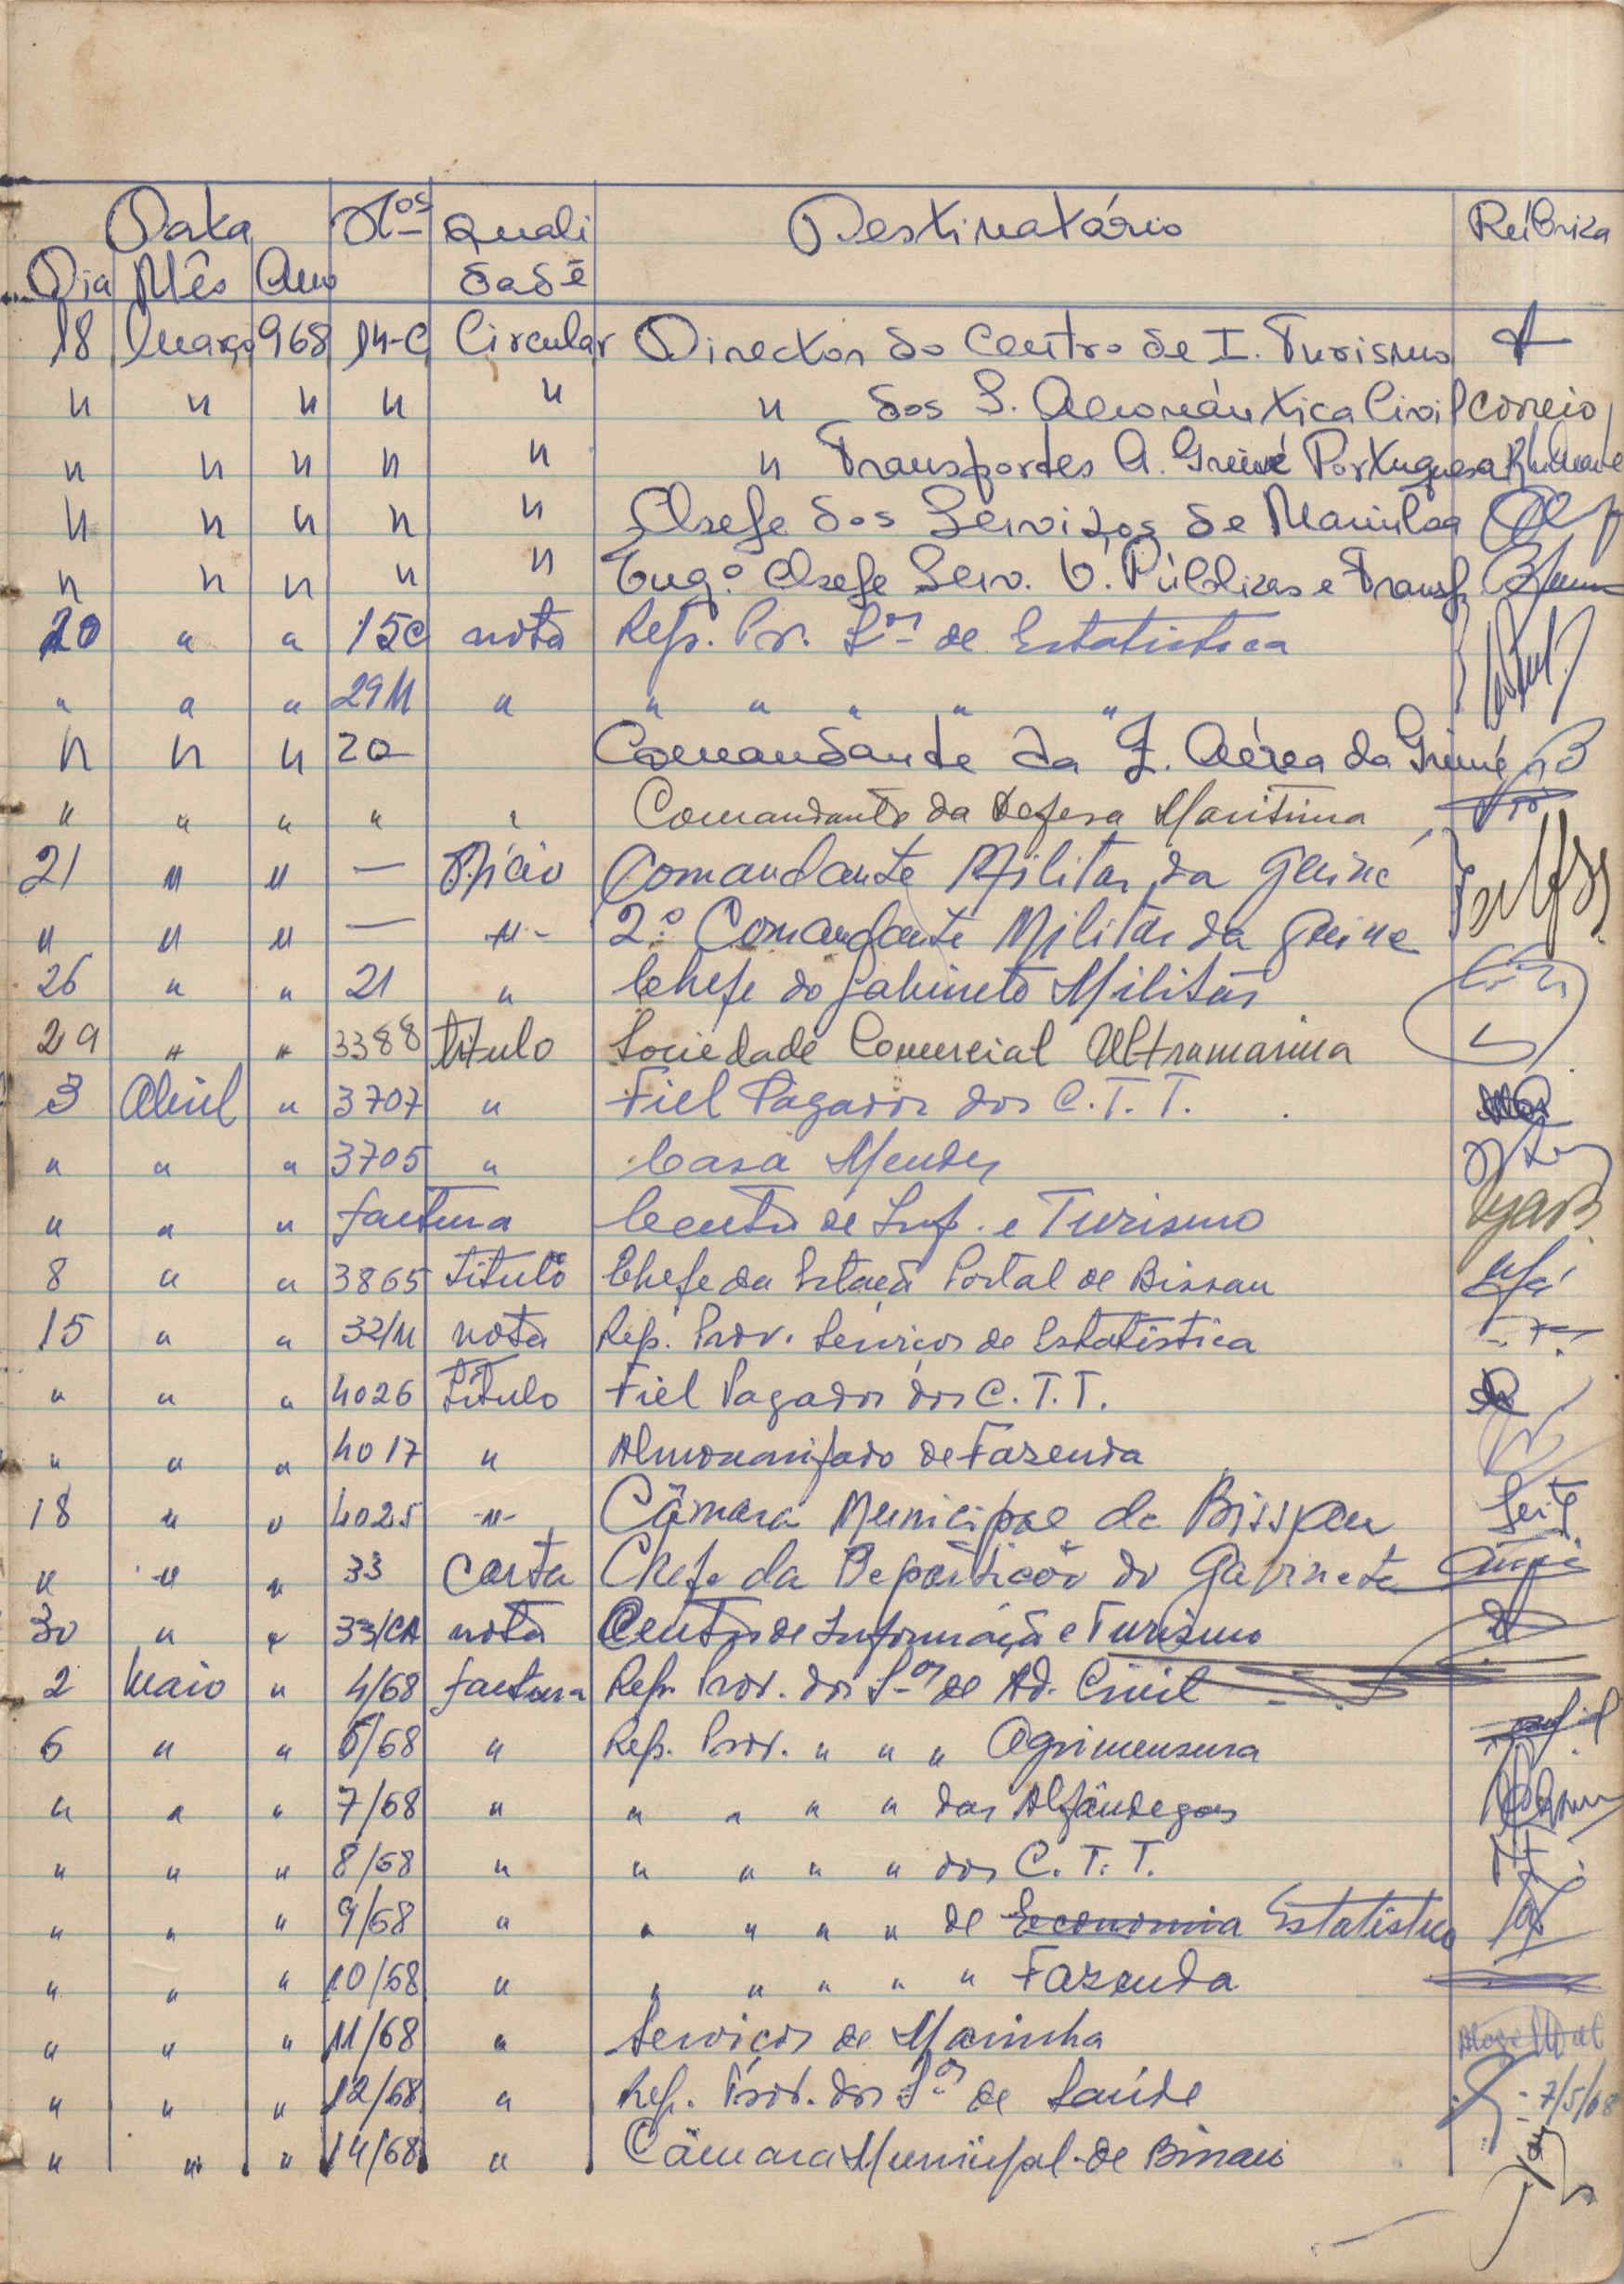 Data Nos Quali Destinatário Rúbrica
Dia Mês Ano dade
18 Março 968 14-C Circular Director do Centro de I. Turismo
" " " " " " dos S. Aeronáutica Civil Correio
" " " " " " Transportes A. Guiné Portuguesa
" " " " " Chefe dos Serviços de Marinha
" " " " " Eng.º Chefe Serv. O. Públicas e Transp.
20 " " 15C nota Rep. Pr. Sos de Estatistica
" " " 29M " " " " " "
" " " 20 Comandante da Z. Aérea da Guiné
" " " " " Comandante da Defesa Maritima
21 " " — Oficio Comandante Militar da Guiné
" " " — -"- 2.º Comandante Militar da Guine
26 " " 21 " Chefe do Gabinete Militar
29 " " 3388 titulo Sociedade Comercial Ultramarina
3 Abril " 3707 " Fiel Pagador dos C.T.T.
" " " 3705 " Casa Mendes
" " " factura Centro de Inf. e Turismo
8 " " 3865 titulo Chefe da Estação Postal de Bissau
15 " " 32/M nota Rep. Prov. Serviços de Estatística
" " " 4026 Titulo Fiel Pagador dos C.T.T.
" " " 4017 " Almoxarifado de Fazenda
18 " " 4025 -"- Câmara Municipal de Bissau
" " " 33 Carta Chefe da Repartição do Gabinete
30 " " 33/CA nota Centro de Informação e Turismo
2 Maio " 4/68 factura Rep. Prov. dos Sos de Ad. Civil
6 " " 6/68 " Rep. Prov. " " " Agrimensura
" " " 7/68 " " " " " das Alfândegas
" " " 8/68 " " " " " dos C.T.T.
" " " 9/68 " " " " " de Economia Estatística
" " " 10/68 " " " " " " Fazenda
" " " 11/68 " Serviços de Marinha
" " " 12/68 " Rep. Prov. dos Sos de Saúde 7/5/68
" " " 14/68 " Câmara Municipal de Bissau